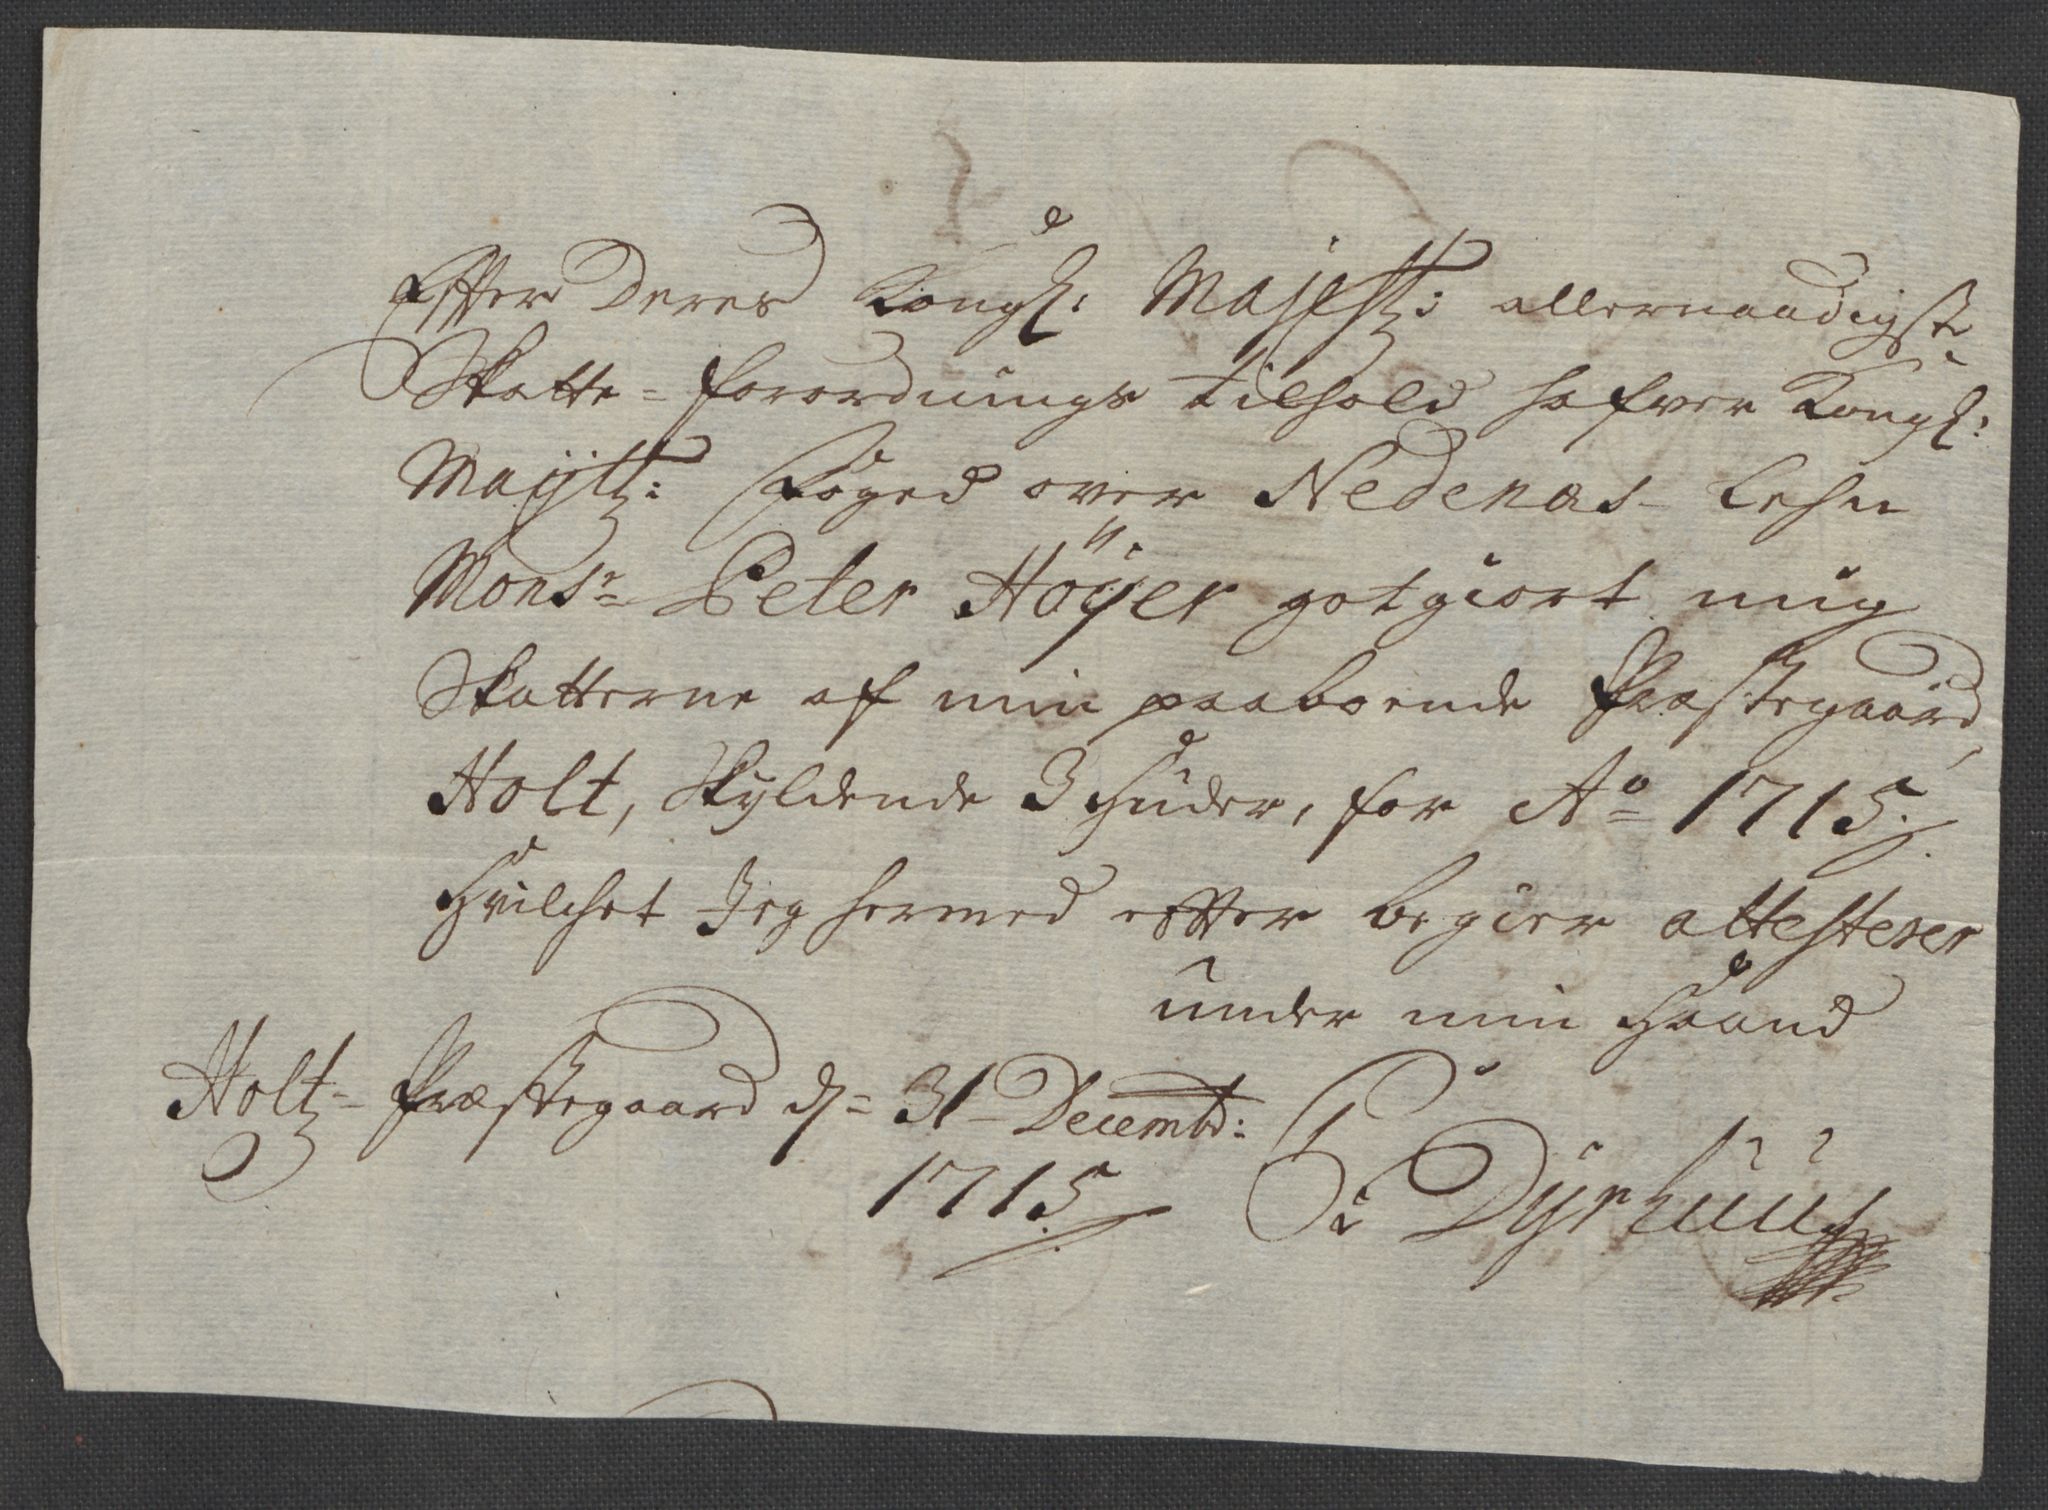 Effter Deres Kongl: Majestz: allernaadigste
Skatte-forordnings tilhold hafver Kongl:
Majtz: Foged over Nedenæs-Lehn
Monsr Peter Höÿer gotgiort mig
Skatterne af min paaboende Præstegaard
Holt, Skyldende 3 Huder, for Ao 1715.
Hvilchet Jeg hermed effter begier attesterer
under min Haand
Holtz- Præstegaard d. 31 Decembr:
1715 Dyrhuus